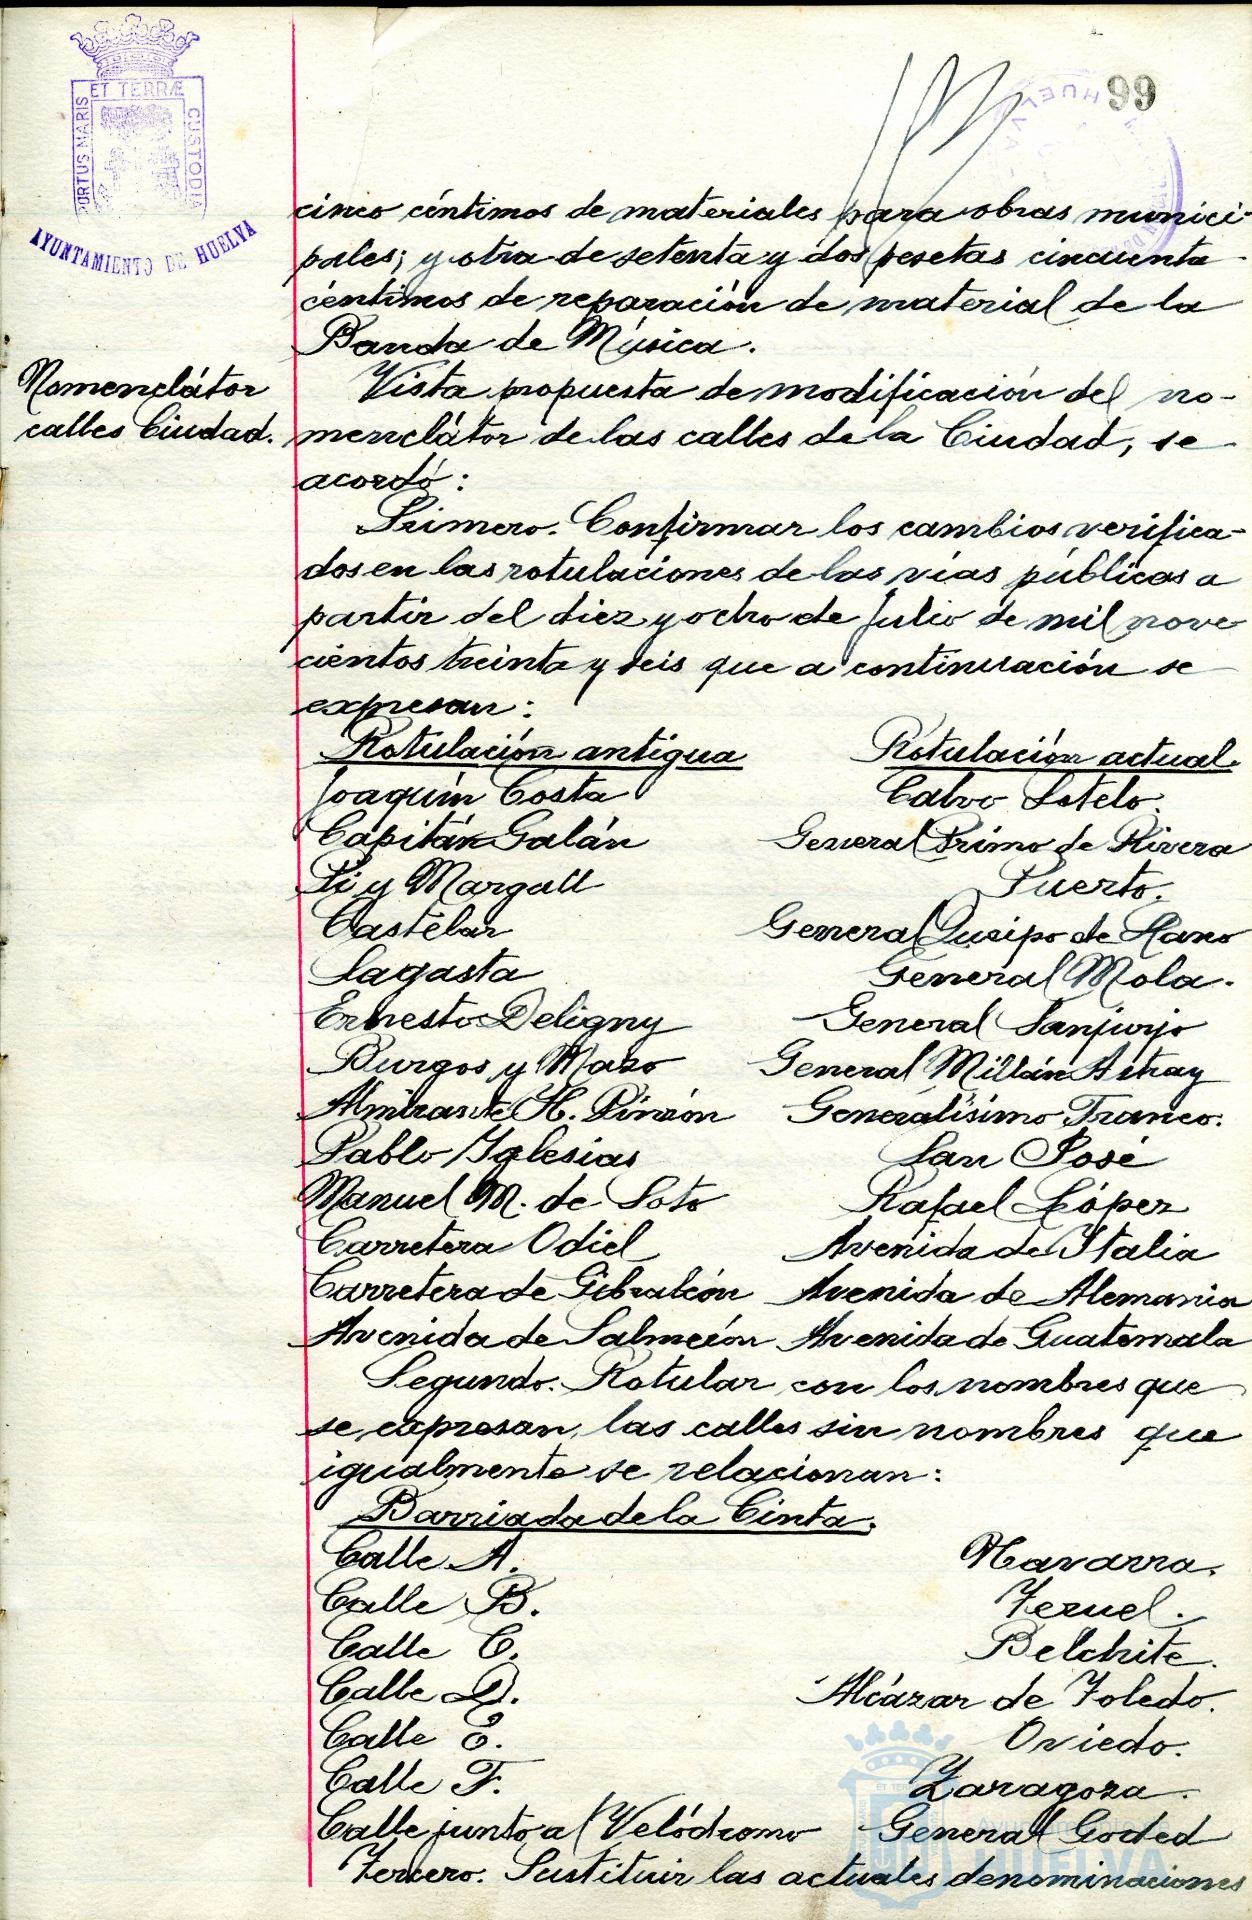 ET TERRÆ
PORTUS MARIS
CUSTODIA
AYUNTAMIENTO DE HUELVA
99
HUELVA
cinco céntimos de materiales para obras munici-
pales; y otra de setenta y dos pesetas cincuenta
céntimos de reparación de material de la
Banda de Música.
Nomenclátor
calles Ciudad.
Vista propuesta de modificación del no-
menclátor de las calles de la Ciudad, se
acordó:
Primero. Confirmar los cambios verifica-
dos en las rotulaciones de las vías públicas a
partir del diez y ocho de Julio de mil nove
cientos treinta y seis que a continuación se
expresan:
Rotulación antigua Rotulación actual.
Joaquín Costa Calvo Sotelo.
Capitán Galán General Primo de Rivera
Pi y Margall Puerto.
Castelar General Queipo de Llano
Sagasta General Mola.
Ernesto Deligny General Sanjurjo
Burgos y Mazo General Millán Astray
Almirante H. Pinzón Generalísimo Franco.
Pablo Iglesias San José
Manuel M. de Soto Rafael López
Carretera Odiel Avenida de Italia
Carretera de Gibraleón Avenida de Alemania
Avenida de Salmerón Avenida de Guatemala
Segundo. Rotular con los nombres que
se expresan, las calles sin nombres que
igualmente se relacionan:
Barriada de la Cinta.
Calle A. Navarra.
Calle B. Teruel.
Calle C. Belchite.
Calle D. Alcázar de Toledo.
Calle E. Oviedo.
Calle F. Zaragoza.
Calle junto al Velódromo General Goded
Tercero. Sustituir las actuales denominaciones
HUELVA